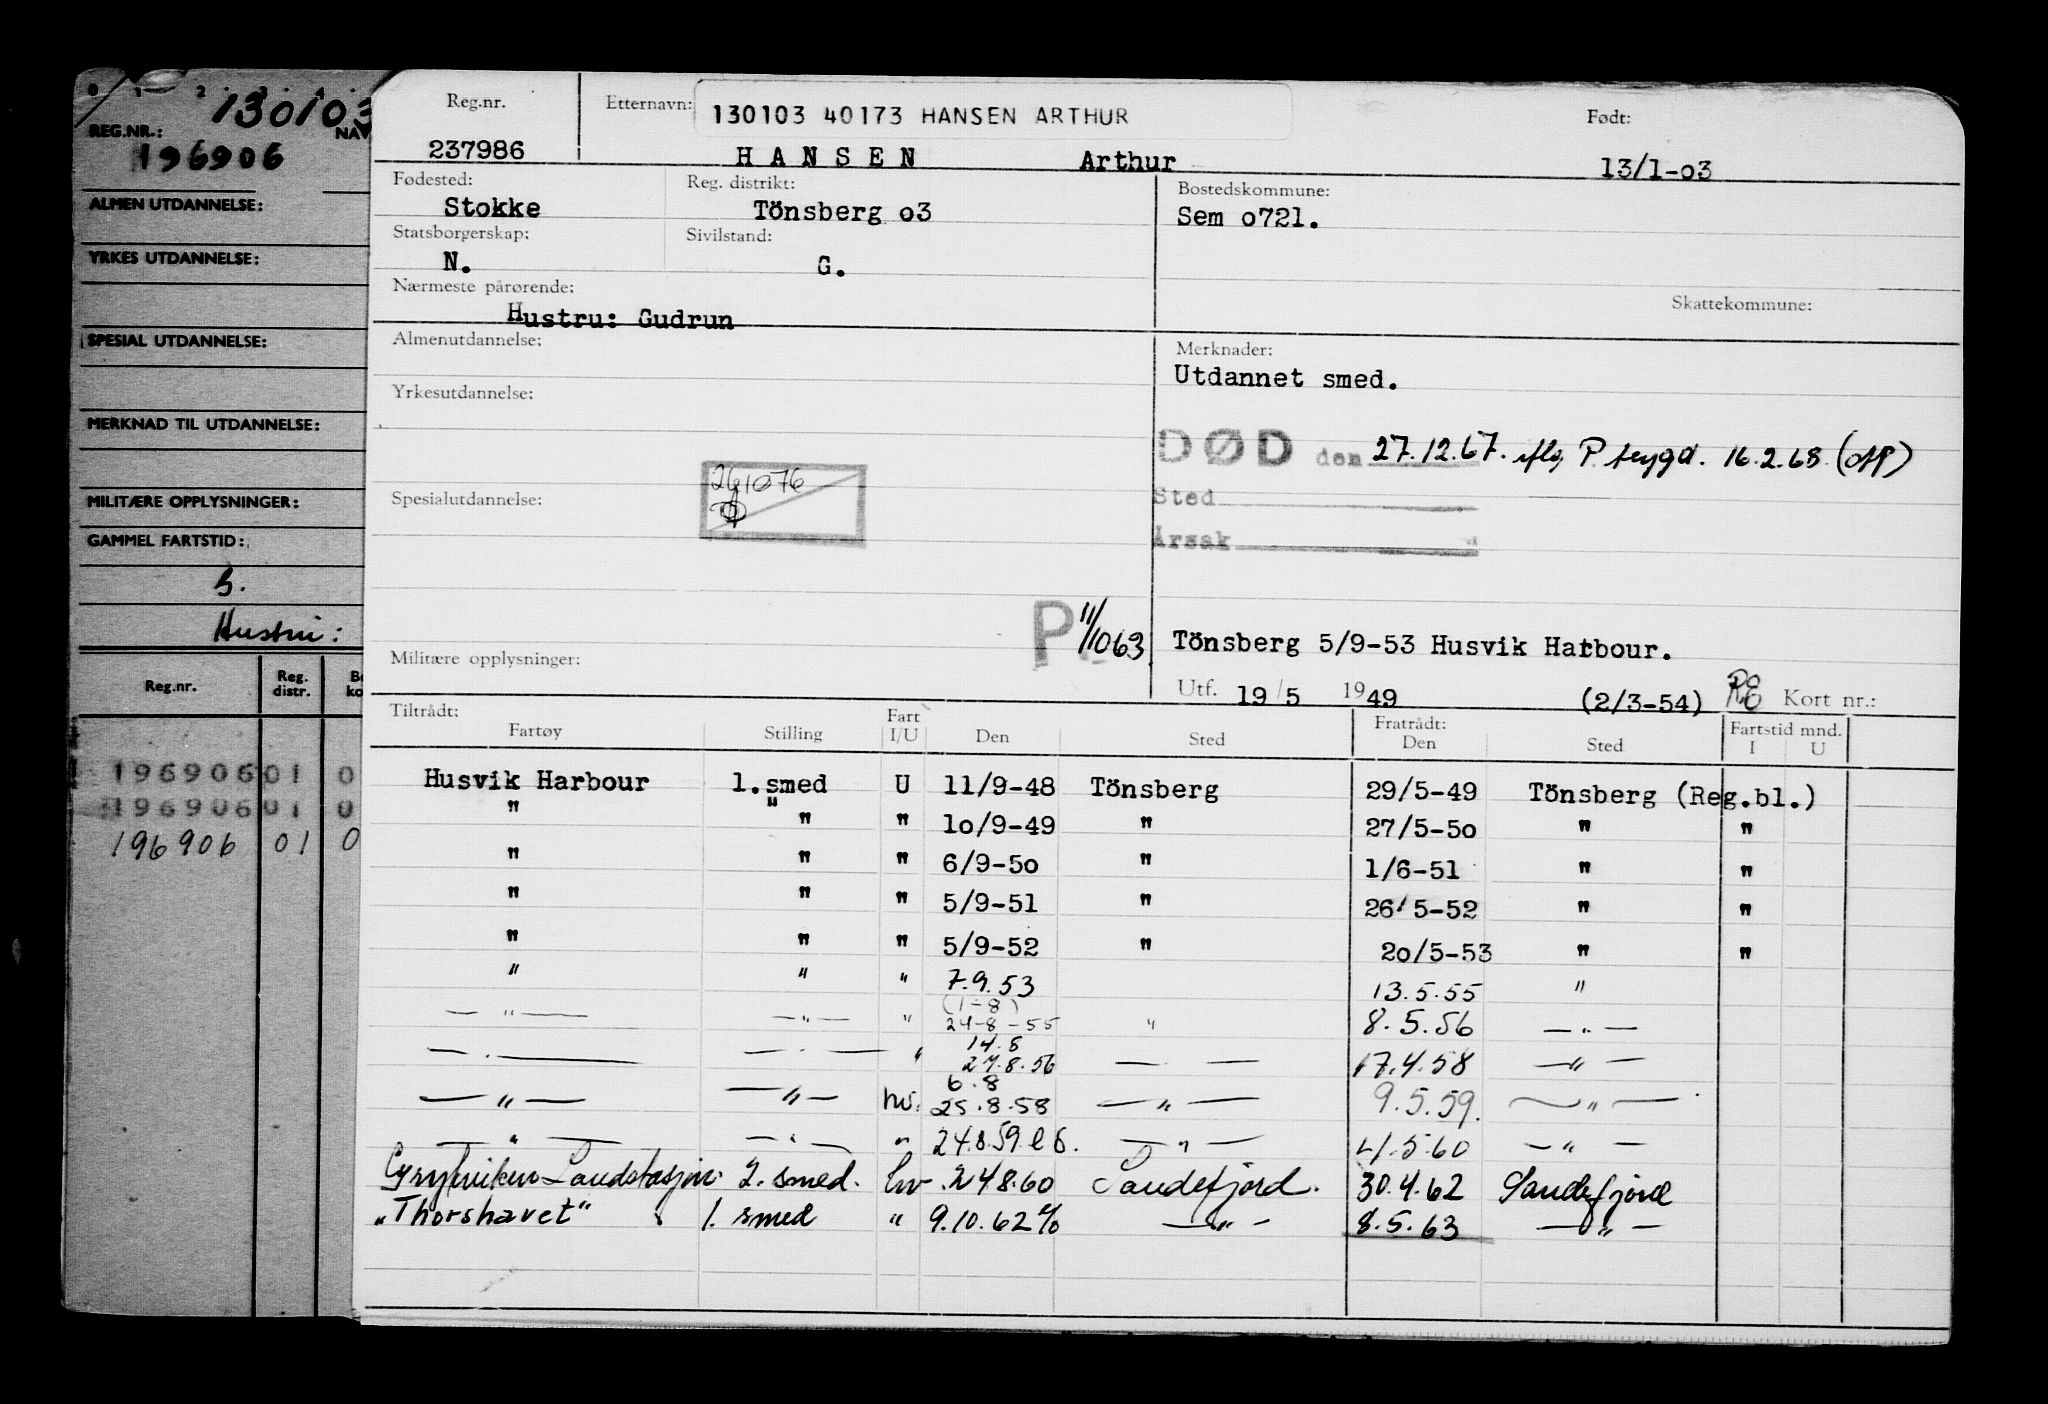 0 1 2
130103
REG.NR.: NAV
196906
ALMEN UTDANNELSE:
YRKES UTDANNELSE:
SPESIAL UTDANNELSE:
MERKNAD TIL UTDANNELSE:
MILITÆRE OPPLYSNINGER:
GAMMEL FARTSTID:
G.
Hustru:
Reg.nr. Reg. distr. Bo ko
196906 01 0
196906 01 0
196906 01 0
Reg.nr. Etternavn: 130103 40173 HANSEN ARTHUR Født:
237986 HANSEN Arthur 13/1-03
Fødested: Reg. distrikt: Bostedskommune:
Stokke Tönsberg 03 Sem 0721.
Statsborgerskap: Sivilstand:
N. G.
Nærmeste pårørende: Skattekommune:
Hustru: Gudrun
Almenutdannelse: Merknader:
Utdannet smed.
Yrkesutdannelse:
DØD den 27.12.67. iflg. P. trygd. 16.2.68.
261076
Spesialutdannelse: Sted
Årsak
P 11/1063
Tönsberg 5/9-53 Husvik Harbour.
Militære opplysninger:
Utf. 19/5 1949 (2/3-54) Kort nr.:
Tiltrådt: Fratrådt: Fartstid mnd.
Fartøy Stilling Fart I/U Den Sted Den Sted I U
Husvik Harbour 1.smed U 11/9-48 Tönsberg 29/5-49 Tönsberg (Reg.bl.)
" " " 10/9-49 " 27/5-50 " "
" " " 6/9-50 " 1/6-51 " "
" " " 5/9-51 " 26/5-52 " "
" " " 5/9-52 " 20/5-53 " "
" " " 7.9.53 13.5.55 "
(1-8)
—"— —"— " 24-8-55 " 8.5.56 —"—
14.8
—"— —"— " 27.8.56 —"— 17.4.58 —"—
6.8
—"— —"— hv. 25.8.58 —"— 9.5.59. —"—
—"— —"— " 24.8.59. —"— 5.60 —"—
Grytviken Landstasjon 2. smed. hv 24860 Sandefjord. 30.4.62 Sandefjord
„Thorshavet" 1. smed " 9.10.62 —"— 8.5.63 —"—